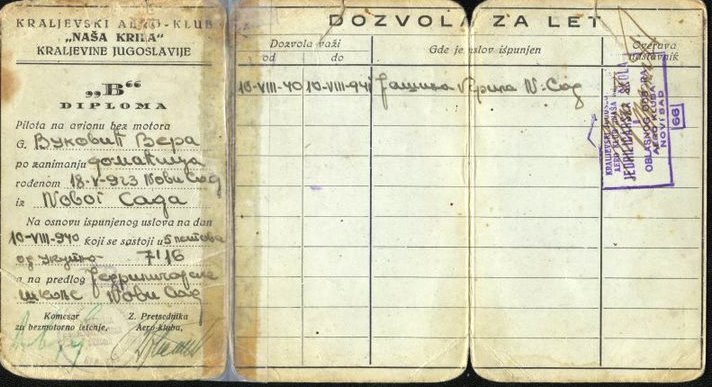 KRALJEVSKI AERO-KLUB
„NAŠA KRILA"
KRALJEVINE JUGOSLAVIJE
„B"
DIPLOMA
Pilota na avionu bez motora
G. Вуковић Вера
po zanimanju домаћица
rođenom 18-V-923 Нови Сад
iz Новог Сада
Na osnovu ispunjenog uslova na dan
10-VIII-940 koji se sastoji u 5 летова
од укупно 7'16
a na predlog Једриличарске
школе Нови Сад
Komesar
za bezmotorno letenje,
Z. Pretsednika
Aero-kluba,
DOZVOLA ZA LET
Dozvola važi
od
do
Gde je uslov ispunjen
Overava
nastavnik
10-VIII-40 10-VIII-941 Јашина Ириг Н-Сад
JEDRILIČARSKA ŠKOLA
OBLASNOG ODBORA
AERO KLUBA
NOVI SAD
66